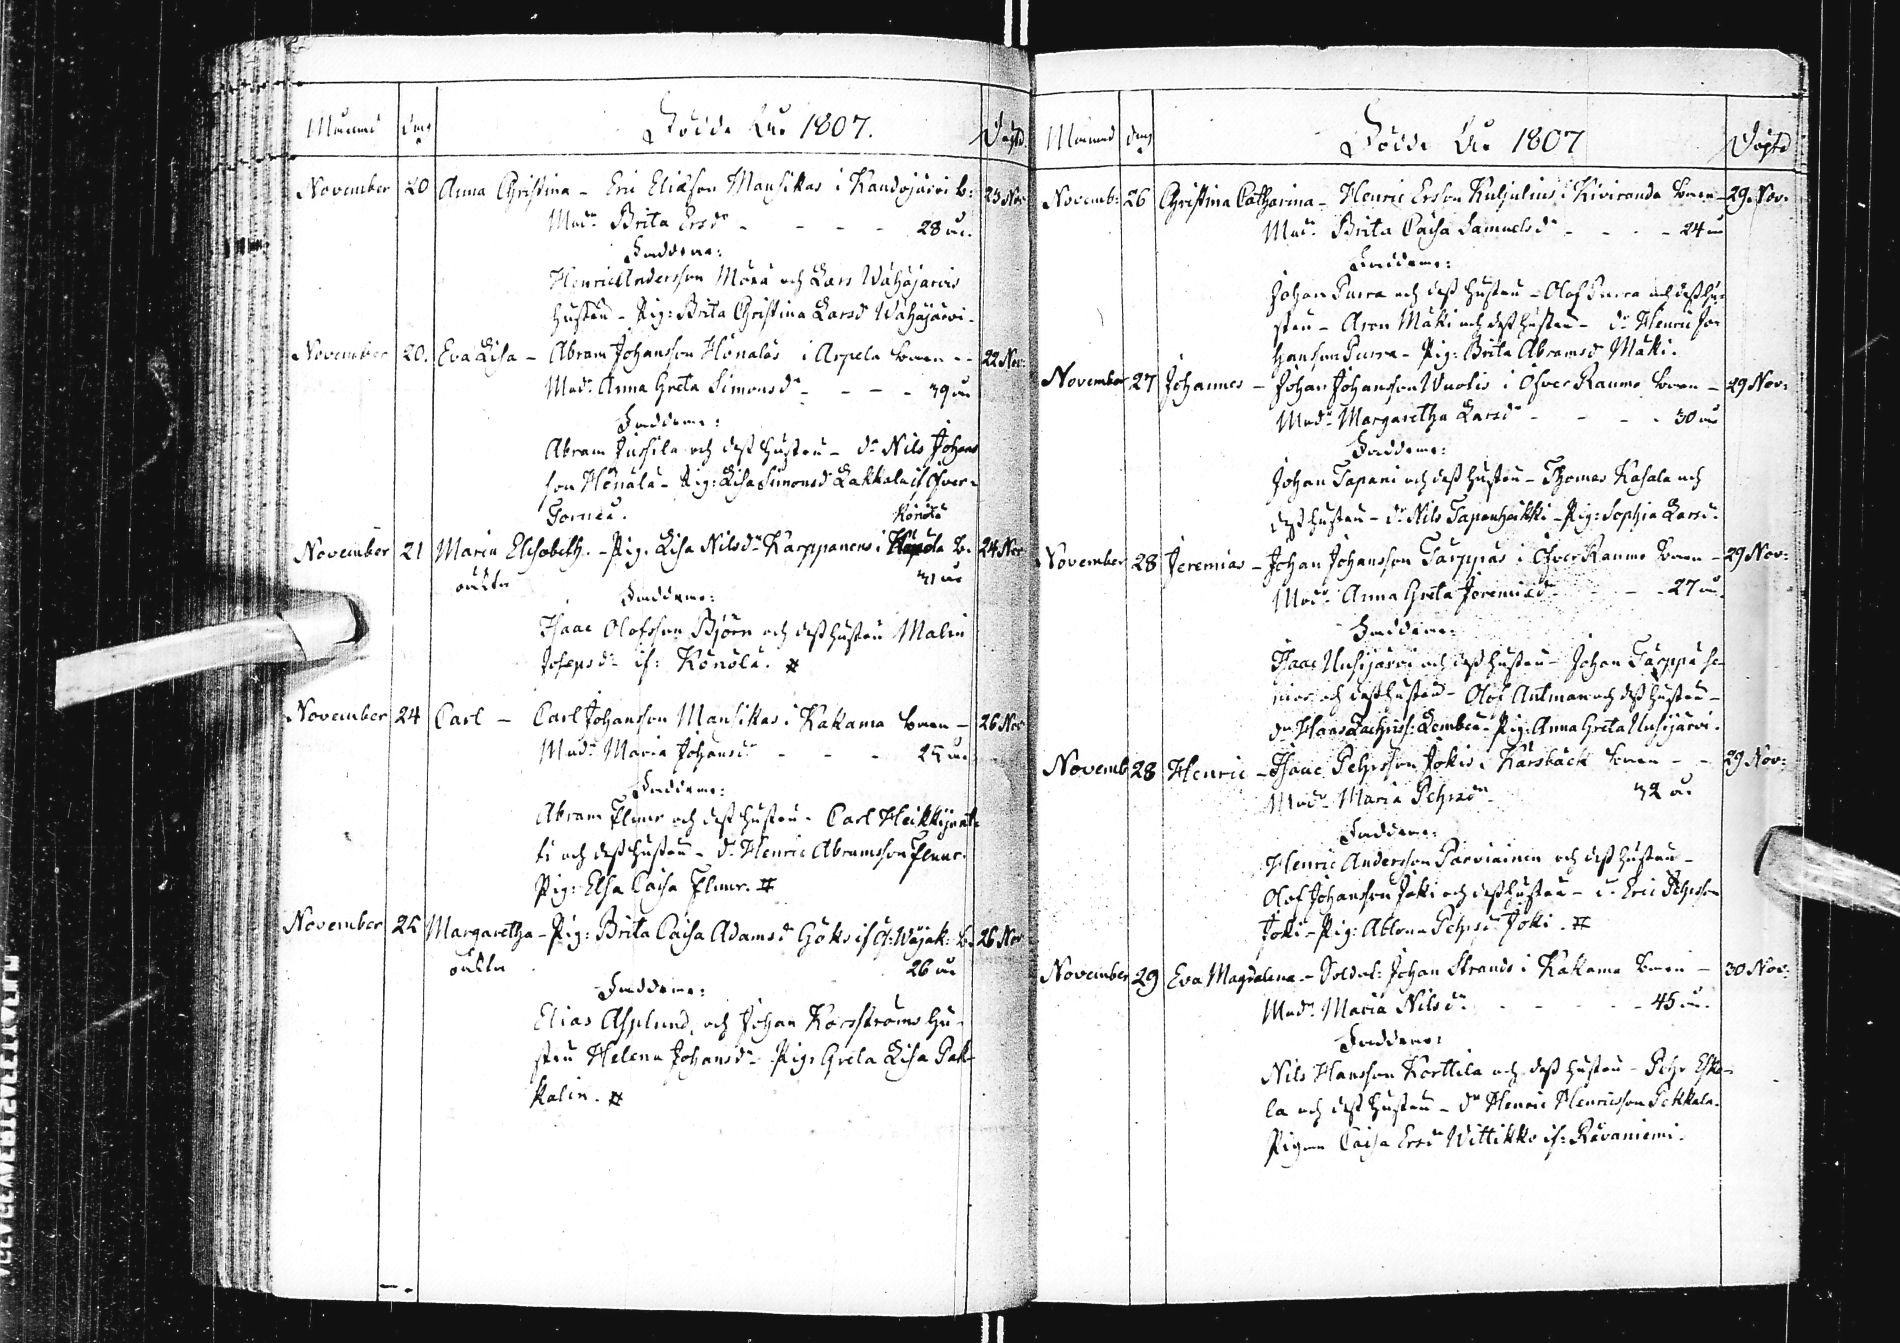 Månad dag Födde År 1807. Döpte
November 20 Anna Christina – Eric Eliasson Mansikas i Kandojärvi b: 23 Nov
Mod: Brita Ersdr - - - - 28 år.
Faddrar:
Henric Andersson Mörä och Lars Wähäjärvis
hustru – Pig: Brita Christina Larsd Wähäjärvi.
November 20. Eva Lisa – Abram Johansson Hönaläs i Arpela - - 22 Nov:
Mod: Anna Greta Simonsdr - - - - 39 år
Faddrar:
Abram Jussila och dess hustru – dr Nils Johans
son Hönälä – Pig: Lisa Simonsd Lakkala if Öfver
Torneå.
Könölä
November 21 Maria Elisabeth. – Pig. Lisa Nilsdr Karppanens i b. 24 Nov
oäkta 31 år
Faddrar:
Isaac Olofsson Björn och dess hustru Malin
Josepsdr if: Könölä. #
November 24 Carl – Carl Johansson Mansikas i Kakama – 26 Nov
Mod: Maria Johansdr - - - 25 år
Faddrar:
Abram Flemr och dess hustru – Carl Heikkijunt
ti och dess hustru – dr Henric Abramsson Flemr.
Pig: Elsa Caisa Flemr. #
November 25 Margaretha – Pig: Brita Caisa Adamsdr Göks if Wojak: b. 26 Nov
oäkta 26 år
Faddrar:
Elias Asplund, och Johan Korsströms hu-
stru Helena Johansdr Pig: Greta Lisa Pak-
kalin. #
Månad dag Födde År 1807 Döpte
Novemb: 26 Christina Catharina – Henric Ersson Kuljulins i Kiviranda – 29. Nov.
Mod: Brita Caisa Samuelsdr - - - - 24 år
Faddrar:
Johan Purra och dess hustru – Olof Purra och dess hu-
stru – Aron Mäki och dess hustru – dr Henric Jo-
hansson Purra – Pig: Brita Abramsd Mäki.
November 27 Johannes – Johan Johansson Wuotis i Öfver Raumo – 29 Nov:
Mod: Margaretha Larsdr - - - - 30 år
Faddrar:
Johan Tapani och dess hustru – Thomas Kasala och
dess hustru – dr Nils Tapanheikki – Pig: Sophia Larsd.
November 28 Jeremias – Johan Johansson Tärppäs i Öfver Raumo – 29 Nov:
Mod: Anna Greta Jeremiæd - - - 27 år.
Faddrar:
Isaac Uusijärvi och dess hustru – Johan Tärppä se-
nior och dess hustru – Olof Antman och dess hustru –
dr Hans Zachriss: Lembeä – Pig: Anna Greta Uusijärvi.
Novemb 28 Henric – Isaac Pehrsson Jokis i Karsbäck - - 29 Nov:
Mod: Maria Pehrsdr 32 år
Faddrar:
Henric Andersson Parviainen och dess hustru –
Olof Johansson Joki och dess hustru – dr Eric Pehrsson
Joki – Pig: Ablona Pehrsd Joki. #
November 29 Eva Magdalena – Soldat: Johan Strands i Kakama – 30 Nov:
Mod: Maria Nilsdr - - - - - 45 år.
Faddrar:
Nils Hansson Korttila och dess hustru – Pehr Esko-
la och dess hustru – dr Henric Henricsson Pekkala.
Pigan Caisa Ersd Wittikko if: Rovaniemi.